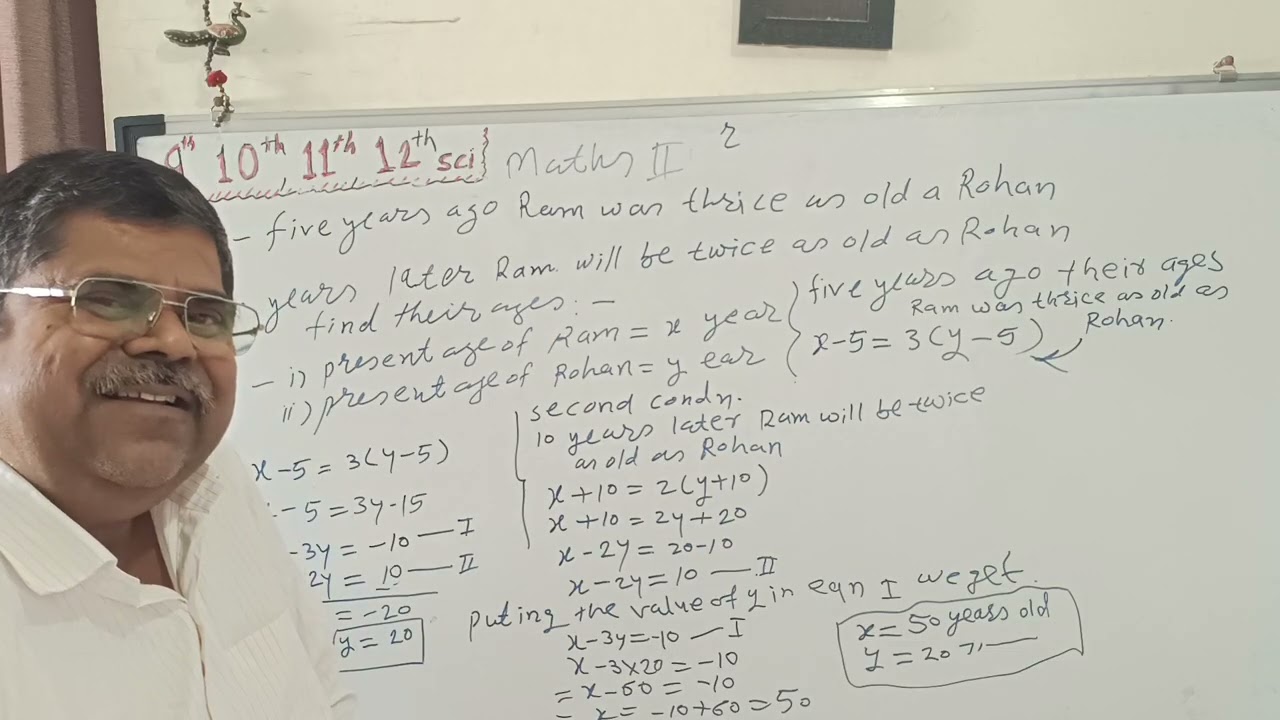 9th 10th 11th 12th sci} Maths II
r
- five years ago Ram was thrice as old a Rohan
years later Ram will be twice as old as Rohan
find their ages: -
- i) present age of Ram = x year
ii) present age of Rohan = y ear
five years ago their ages
Ram was thrice as old as
Rohan.
x-5 = 3(y-5)
x-5 = 3(y-5)
-5 = 3y-15
-3y = -10 — I
2y = 10 — II
= -20
y = 20
second condn.
10 years later Ram will be twice
as old as Rohan
x+10 = 2(y+10)
x+10 = 2y+20
x-2y = 20-10
x-2y = 10 — II
puting the value of y in eqn I we get
x-3y=-10 — I
x-3×20 = -10
= x-60 = -10
= x = -10+60 = 50
x = 50 years old
y = 20